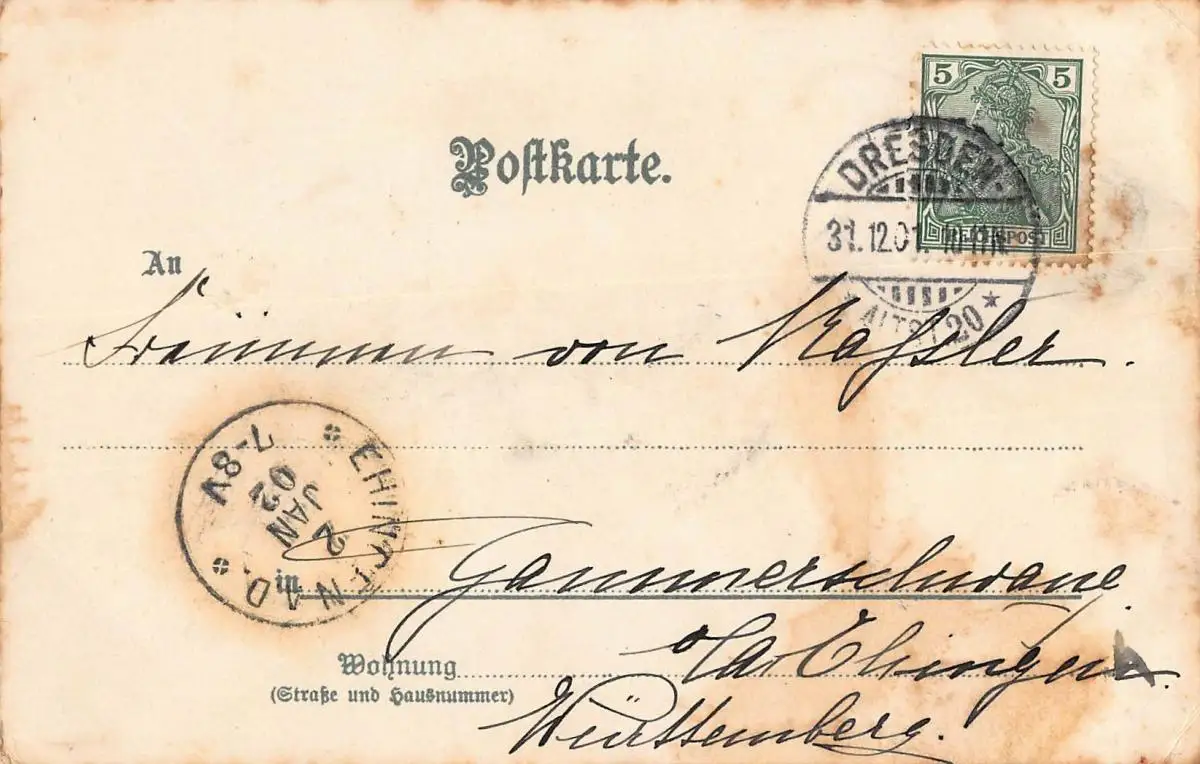 5 5
REICHSPOST
Postkarte.
DRESDEN-
31.12.01. 10-11N
ALTST. 20 *
An
von
EHINGEN A.D.
7-8V
2 JAN 02
in Gammerschwang
Ehingen
Wohnung
(Straße und Hausnummer)
Württemberg.